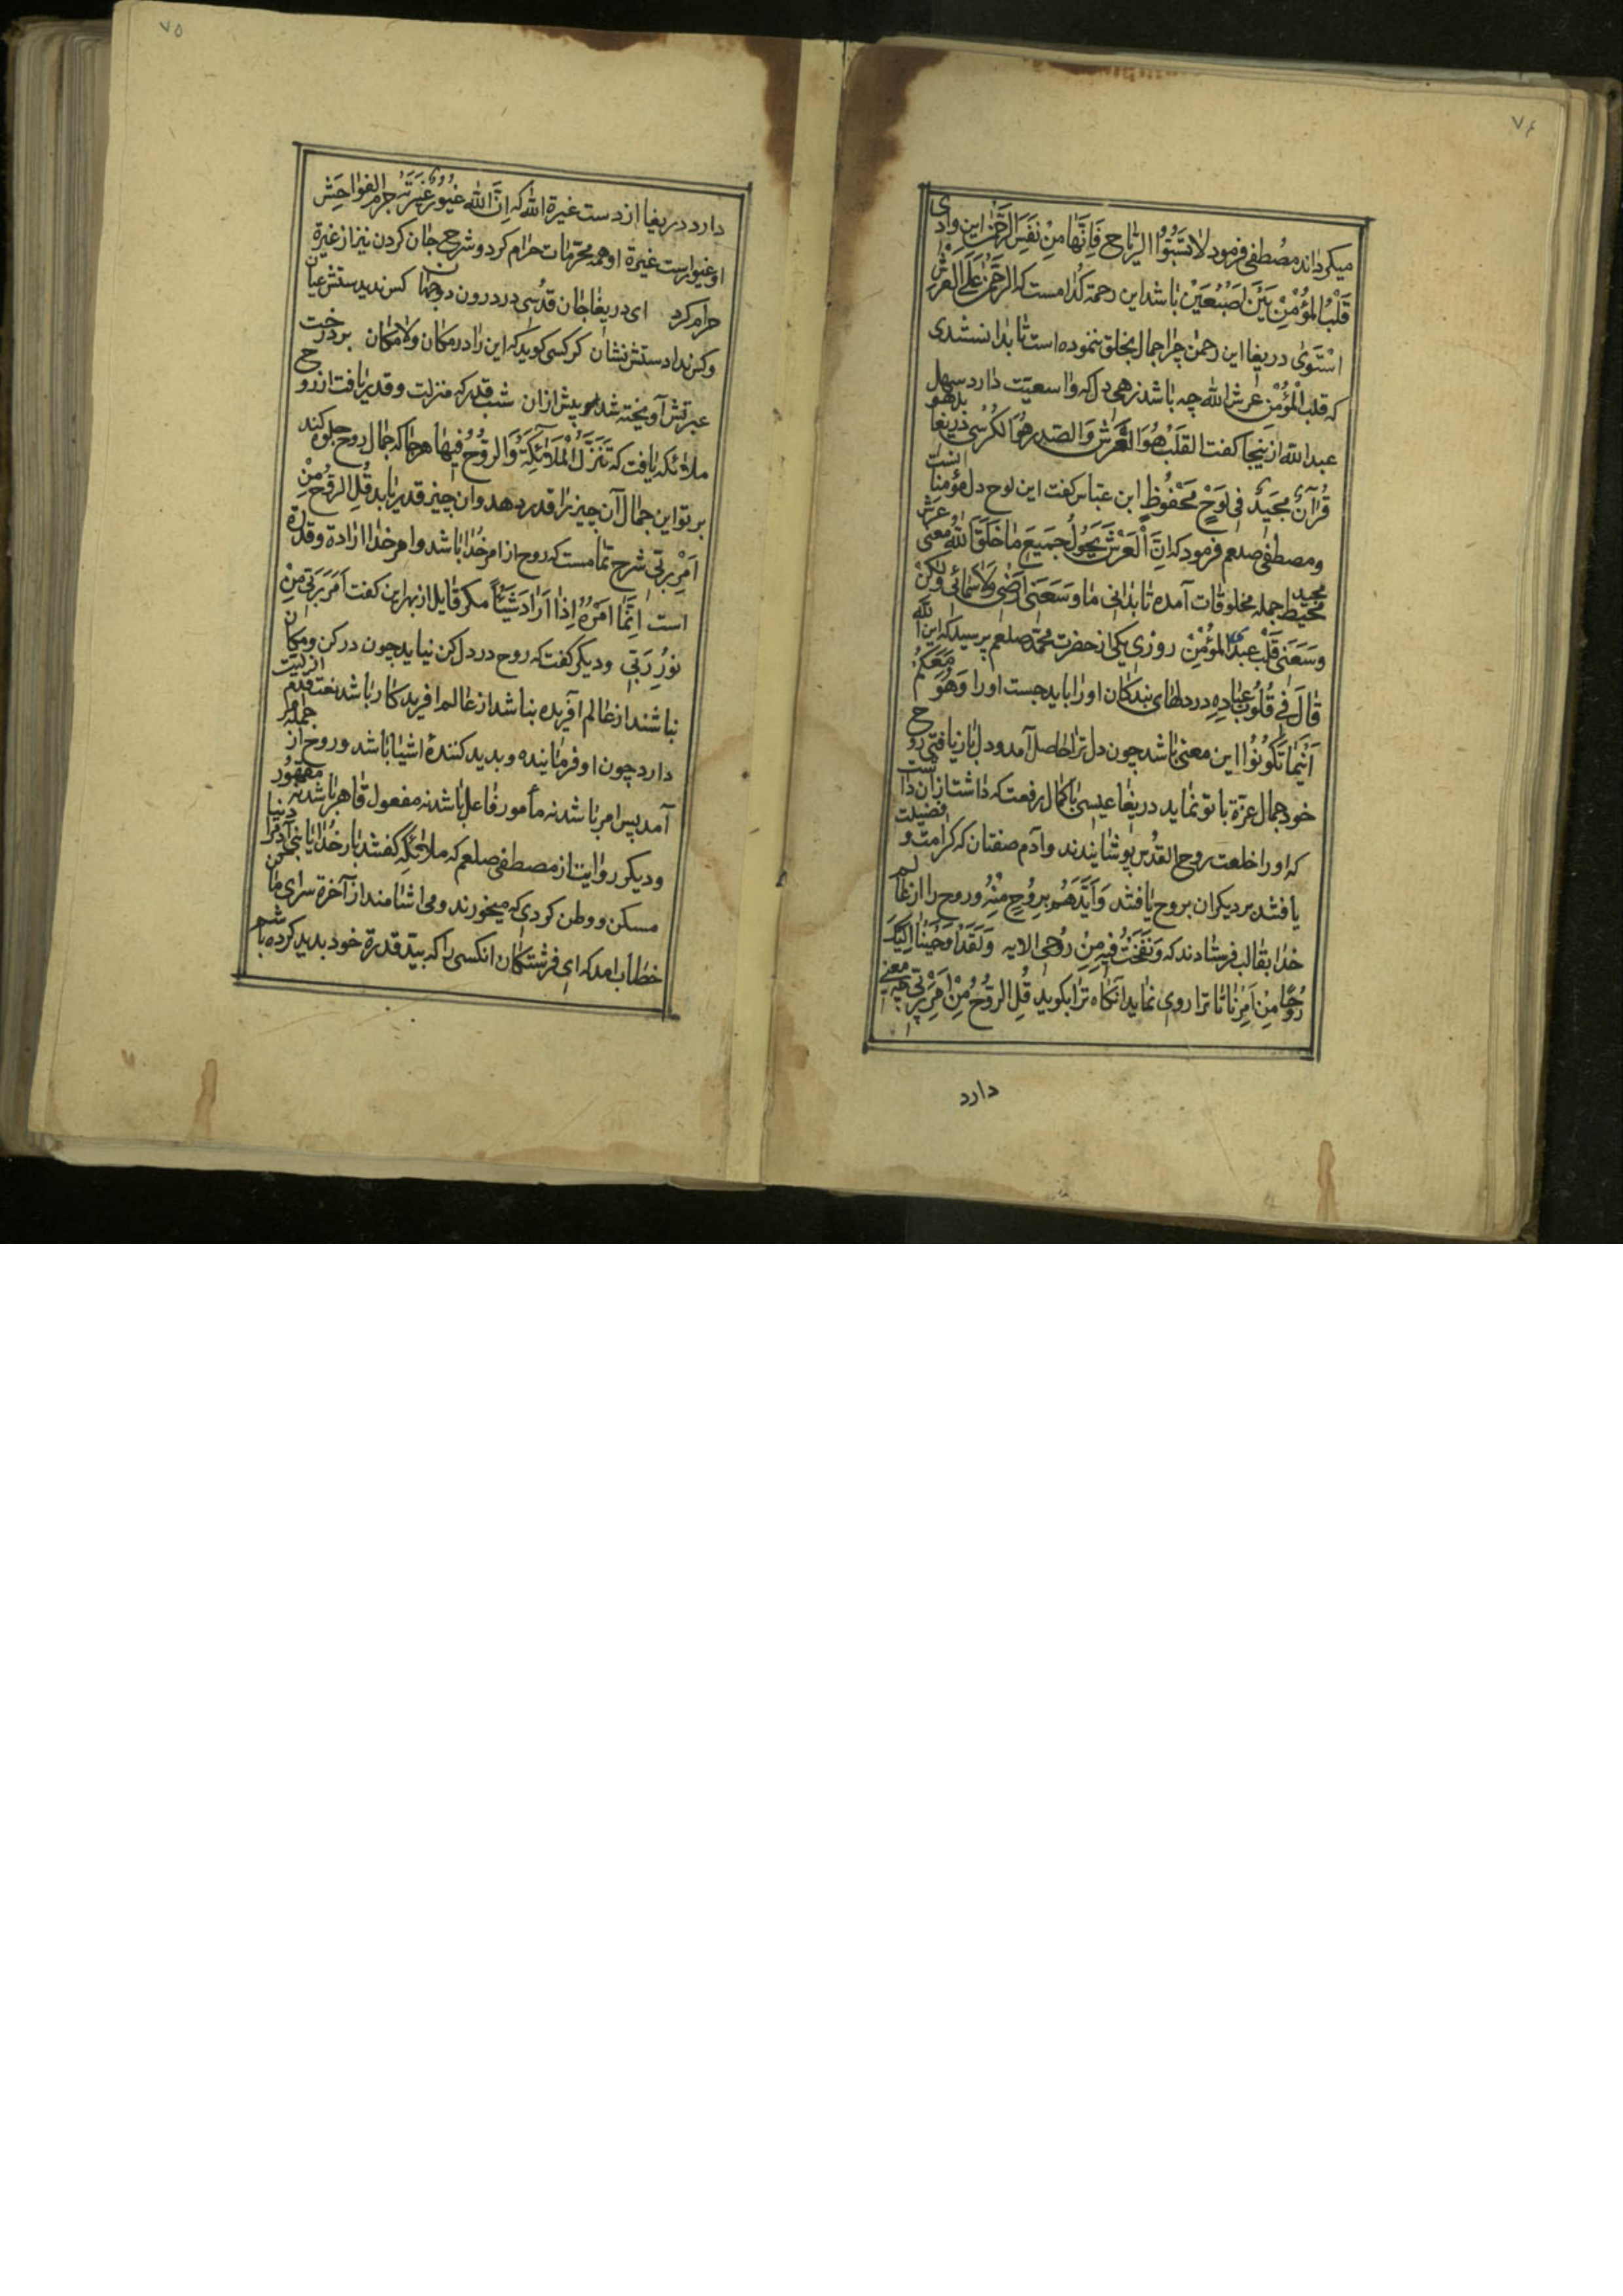 ۷۴
میکرداند مصُطفی فرمود لاٰ تَسُبّوُا الرّیٰاحَ فَاِنَّهٰا مِنْ نَفَسِ الرَّحْمٰن این وادی
قَلْبُ المؤُمْنِ بَیْنَ اصَبُعَیْن بٰاشد این رحمة کدٰامست که الرَحْمٰنُ عَلَی العَرْشِ
اسْتَوٰی دریغا این رحمٰن چرٰا جمال بخلق ننموده است تٰا بدٰانستندی
که قلب المؤُمْن عرش الله چه بٰاشد زهی دل که وٰاسعیّت دٰارد سهل
عبد الله ازینجٰا کفت القَلبُ هُوَ العَرَشُ وَ الصّدر هُوَ الکُرسُی دریغا بل هو
قُرآنٌ مجَیدٌ فی لَوَحٍ مَحْفُوظٍ ابن عبّاس کفت این لوح دل مؤمنٰا نست
ومصطفی صلعم فرمود که اِنَّ اْلعَرْشَ یَحوُلُ جَمیَعَ مٰا خَلَقَ اللهُ معنی عرش
مجید محیط جمله مخلوقات آمده تٰا بدٰانی مٰا وسَعَنی اَرضْی وَلاٰسَمٰائی وَلٰکنْ
وسَعَنی قَلْبُ عَبْدَی المؤُمْنِ روزی یکی از حضرت محمّد صلعم پرسید که این الله
قٰالَ فی قُلُوُب عبٰادِهِ در دلهٰای بندکٰان اورٰا باید جست اورا وَهُوَ مَعَکمُ
اَیْنَمٰا تکَوُنوُا این معنی بٰاشد چون دل ترٰا حٰاصل آمد و دل بٰاز یٰافتی روح
خود جمال عزّة با تو نمٰاید دریغٰا عیسی بٰا کمٰال رفعت که دٰاشت ازان دٰاشت
که اورٰا خلعت روح القدُس پوشٰانیدند وآدم صفتٰان که کرٰامت و فضیلت
یٰافتند بر دیکران بروح یٰافتند وَاَیَّدَهَمُ بِرُوُحٍ مِنْهُ وروح رٰا از عٰالم
خدٰا بقٰالب فرستٰادند که وَنَفَخْتُ فیهِ مِنْ رُوُحی الایه وَلَقَدْ اَوْحَیْنٰا اِلَیْکَ
رُوُحًا مِنْ اَمْرِنٰا تٰا ترٰا روی نمٰاید آنکٰاه ترٰا بکوید قُلِ الرّوُحُ مِنْ اَمْرِ رَبّی چه معنی
دارد
۷۵
دٰارد دریغا از دست غیرة الله که اِنَّ اللهَ غَیُوُرٌ غَیْرَتَهُ حرم الفَوٰاحِش
او غیور است غیرة او همه محرّمٰات حرٰام کرد وشرح جٰان کردن نیز از غیرة
حرٰام کرد ای دریغٰا جٰان قدُسی در درون دو جهٰان کس ندید ستش عیٰان
وکس نداد ستش نشٰان کر کسی کوید که این رٰا در مکٰان ولامکٰان بر درخت
عبرتش آویخته شد پیش ازان شب قدر که منزلت وقدر یٰافت از روح
ملاٰئکه یٰافت که تَنَزَّلُ الْملاٰئِکِةُ وَالرّوُحُ فیهٰا هر جٰا که جمٰال روح جلوه کند
بر تو این جمٰال آن چیز رٰا قدر دهد وان چیز قدر یٰابد قُلِ الرّوُح مِنْ
اَمْرِ رَبّی شرح تمٰامست که روح از امر خُدٰا بٰاشد وامر خدٰا ارٰادة وقدرة
است اِنَّمٰا اَمْرُهُ اِذٰا اَرٰادَ شَیْئًا مکر قٰایل از بهر این کفت اَمَر رَبّی مِنْ
نوُرِ رَبّی ودیکر کفت که روح در دل کن نیٰاید چون در کن ومکٰان
نبٰاشند از عٰالم آفریده نبٰاشد از عٰالم افریدکٰار بٰاشد نعت قِدَم ازلیّت
دارد چون او فرمٰاینده وبدید کننده اشیٰا بٰاشد وروح از جمله امر
آمد پس امر بٰاشد نه مأمور فٰاعل بٰاشد نه مفعول قٰاهر بٰاشد نه مقهوُر
ودیکر روٰایت از مصطفی صلعم که ملاٰئکه کفتند بٰار خُدٰایٰا بنی آدم رٰا دنیٰا
مسکن ووطن کردی که میخورند ومی اشٰامند از آخرة سرٰای مٰا کن
خطٰاب امد که ای فرشتکٰان انکسی رٰا که بید قدرة خود بدید کرده بٰاشم